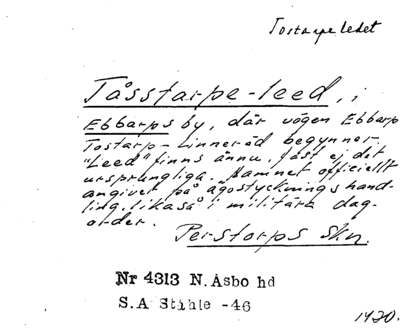 Tostarpeledet
Tåsstarpe-leed, i
Ebbarps by, där vägen Ebbarp
Tostarp-Linneröd begynner.
"Leed" finns ännu, fast ej det
ursprungliga. Namnet officiellt
angivet på ägostycknings hand-
ling, likaså i militära dag-
order.
Perstorps skn.
Nr 4313 N. Åsbo hd
S.A Ståhle -46
1420.